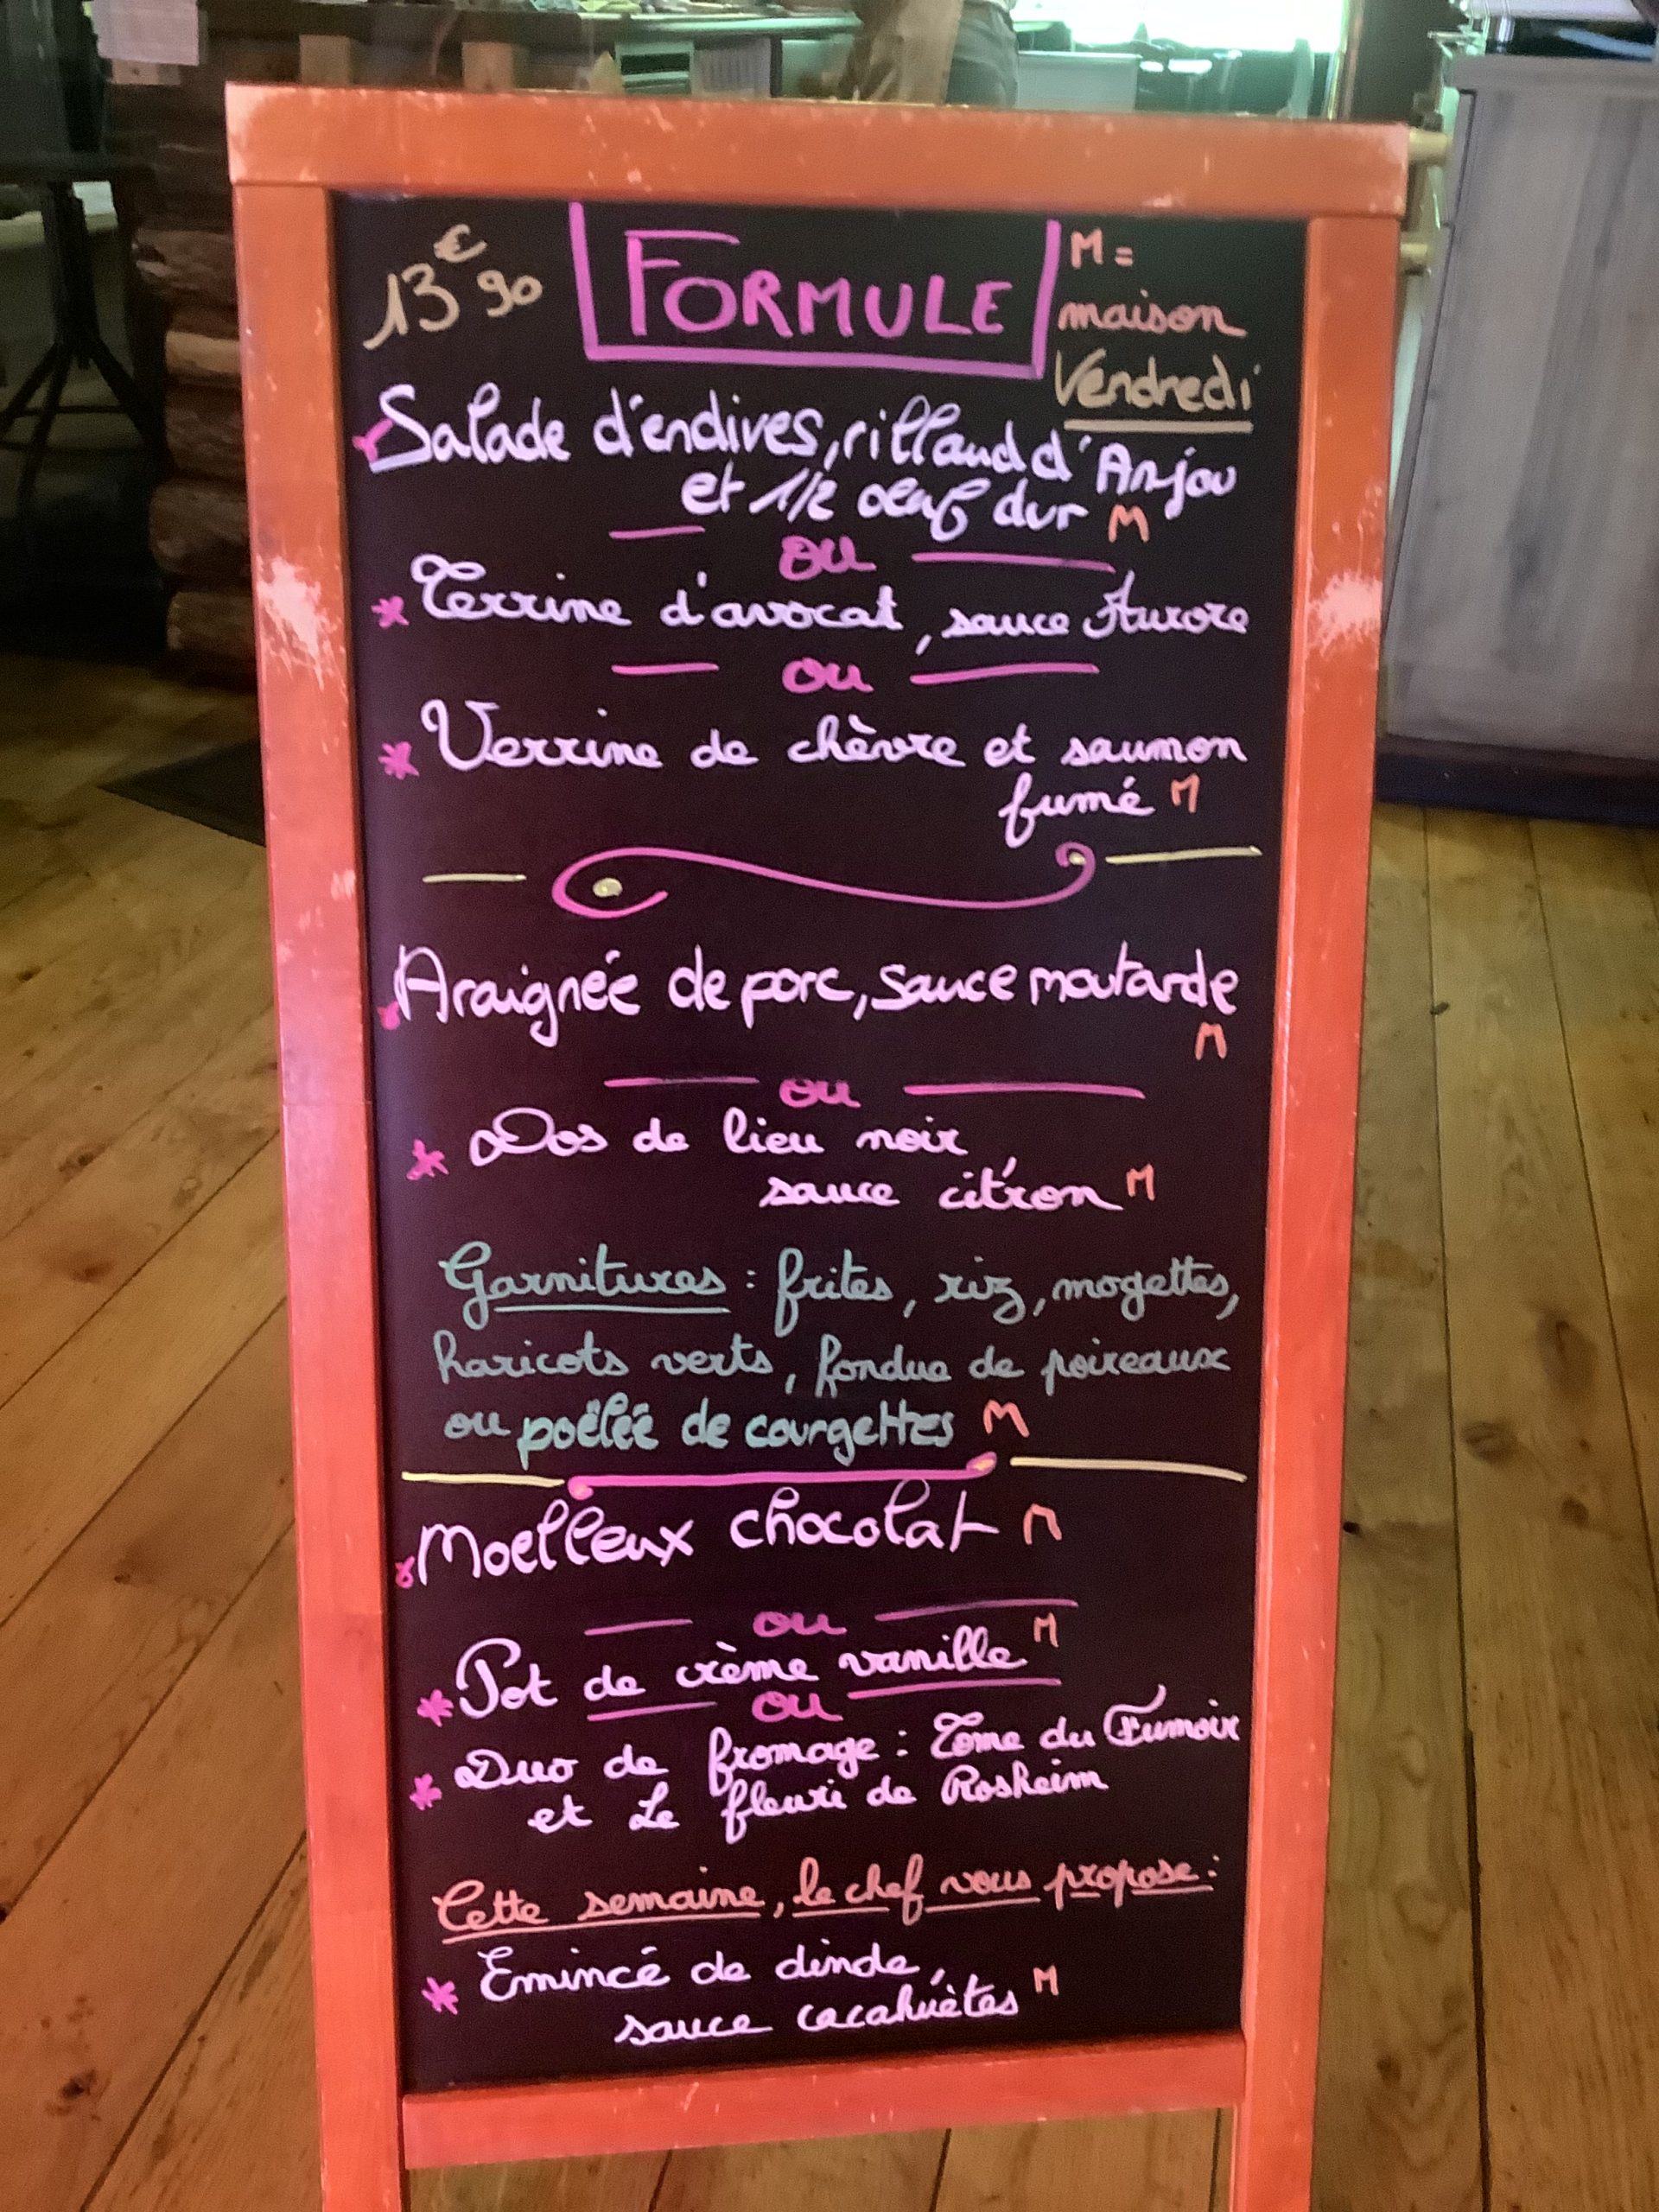 13€90
FORMULE
M =
maison
Vendredi
Salade d'endives, rillaud d'Anjou
et 1/2 oeuf dur M
ou
* Terrine d'avocat, sauce Aurore
ou
* Verrine de chèvre et saumon
fumé M
Araignée de porc, sauce moutarde
M
ou
* Dos de lieu noir,
sauce citron M
Garnitures : frites, riz, mogettes,
haricots verts, fondue de poireaux
ou poêlée de courgettes M
Moelleux chocolat M
ou
* Pot de crème vanille M
ou
* Duo de fromage : Tome du Fumoir
et Le fleuri de Rosheim
Cette semaine, le chef vous propose :
* Emincé de dinde,
sauce cacahuètes M